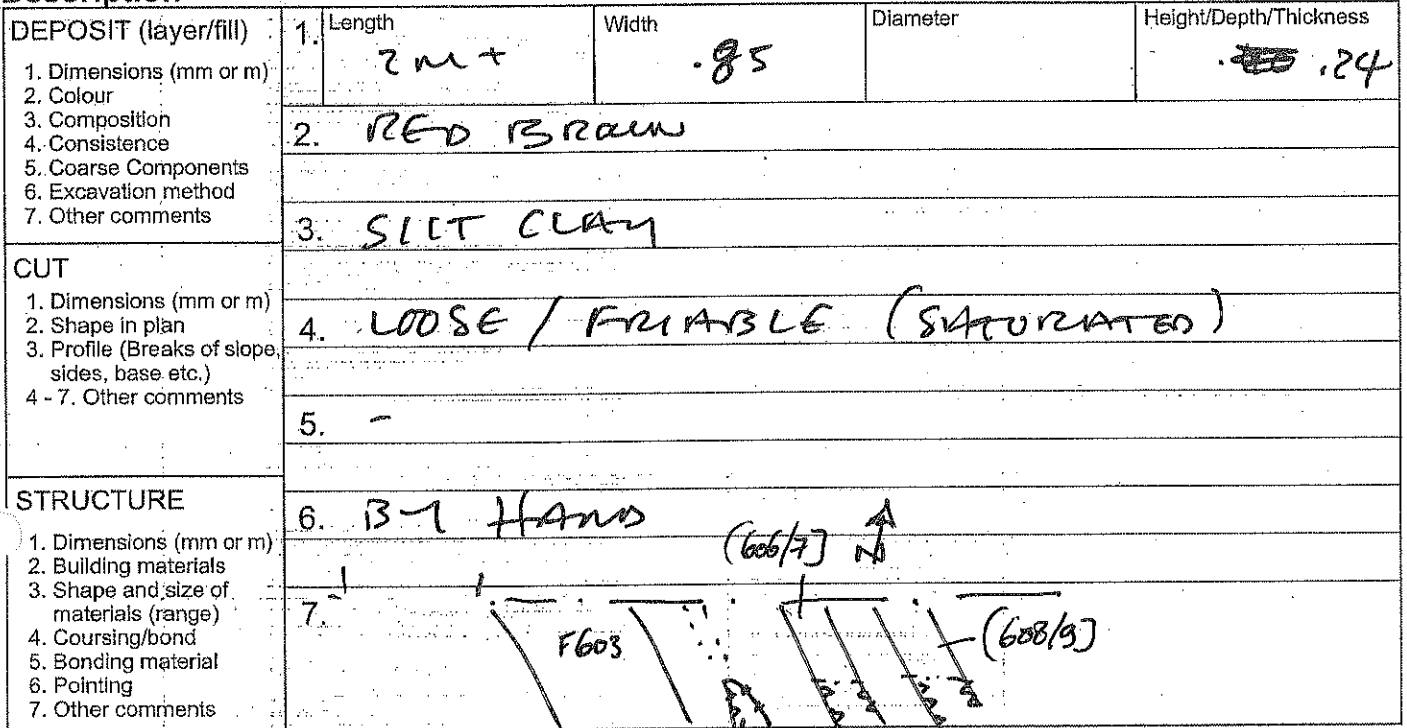 DEPOSIT (layer/fill)
1. Dimensions (mm or m)
2. Colour
3. Composition
4. Consistence
5. Coarse Components
6. Excavation method
7. Other comments
CUT
1. Dimensions (mm or m)
2. Shape in plan
3. Profile (Breaks of slope,
sides, base etc.)
4 - 7. Other comments
STRUCTURE
1. Dimensions (mm or m)
2. Building materials
3. Shape and size of
materials (range)
4. Coursing/bond
5. Bonding material
6. Pointing
7. Other comments
1. Length Width Diameter Height/Depth/Thickness
2m+ .85 .24
2. RED BROWN
3. SILT CLAY
4. LOOSE / FRIABLE (SATURATED)
5. -
6. BY HAND
(606/7] N
7.
F603 (608/9]